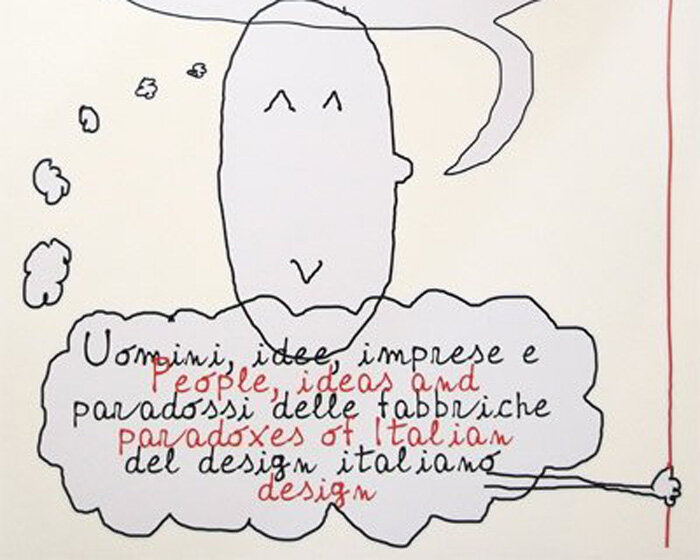 Uomini, idee, imprese e
People, ideas and
paradossi delle fabbriche
paradoxes of Italian
del design italiano
design